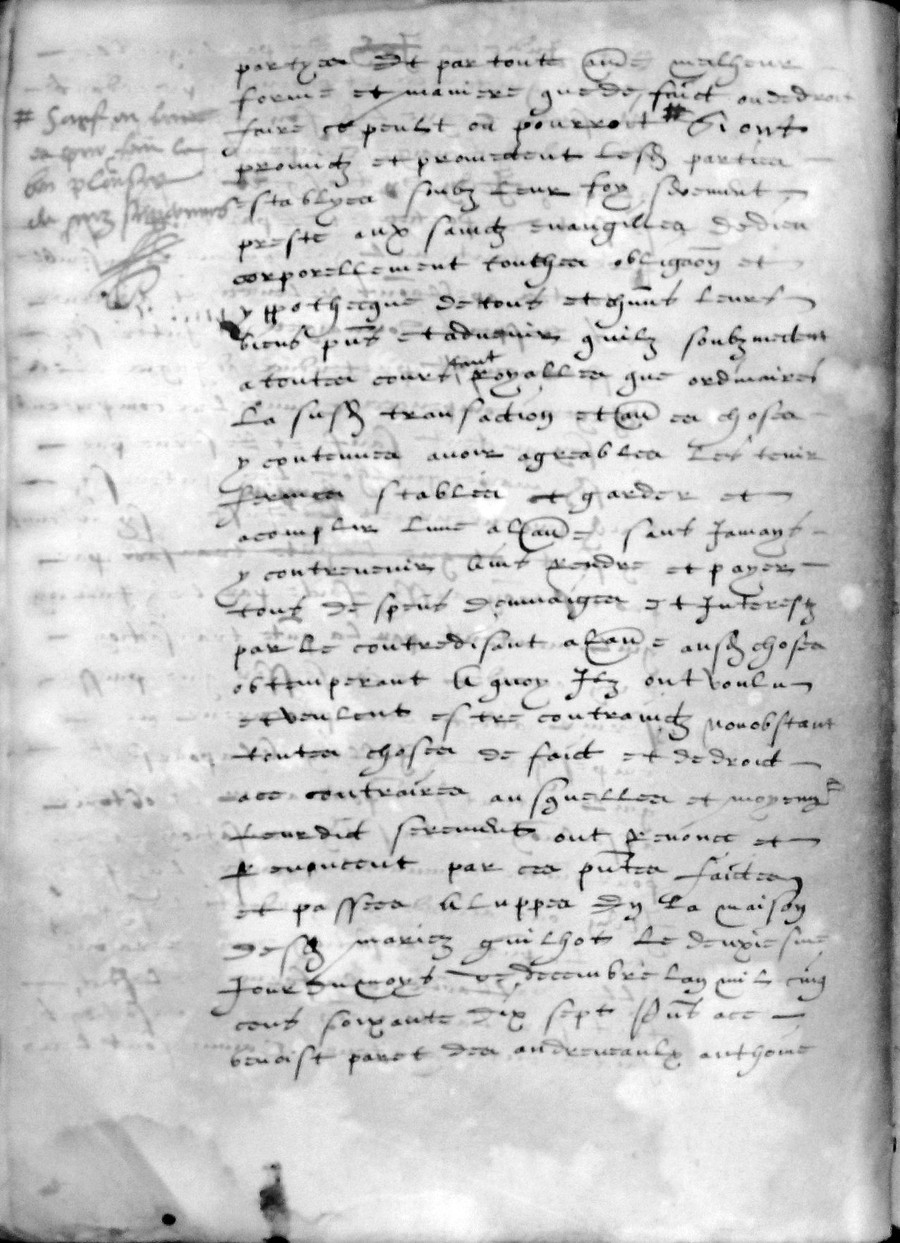 partyes Et par toute aue melheur
forme et maniere que de faict ou de droit
faire se peult ou pourroit # Si ont
# Sauf
promidz et promectent lesd parties
establyes soubz leur foy serement
preste aux sainctz evangilles de dieu
corporellement touthes obligaon et
yppothecque de tous et chuns leurs
biens pnts et advenir quilz soubzmectent
a toutes cours tant royalles que ordinaires
La susd transaction et au es choses
y contenues avoir agreables les tenir
fermes stables et garder et
acomplir lune a laue sans Jamays
y contrevenir Ains rendre et payer
tous despens dommaiges et Interestz
par le contredisant a laue ausd choses
obtemperant A quoy Ilz ont voulu
et veulent estre contrainctz nonobstant
toutes choses de faict et de droict
a ce contraires ausquelles et moyent
leurdict serement ont renonce et
Renoncent par ces pntes faictes
et passees A luppes En la maison
desd mariez guilhot le deuxiesme
Jour du moys de decembre lan mil cinq
cens soixante dix sept Pnt a ce
benoist paret des andreveaulx anthoine